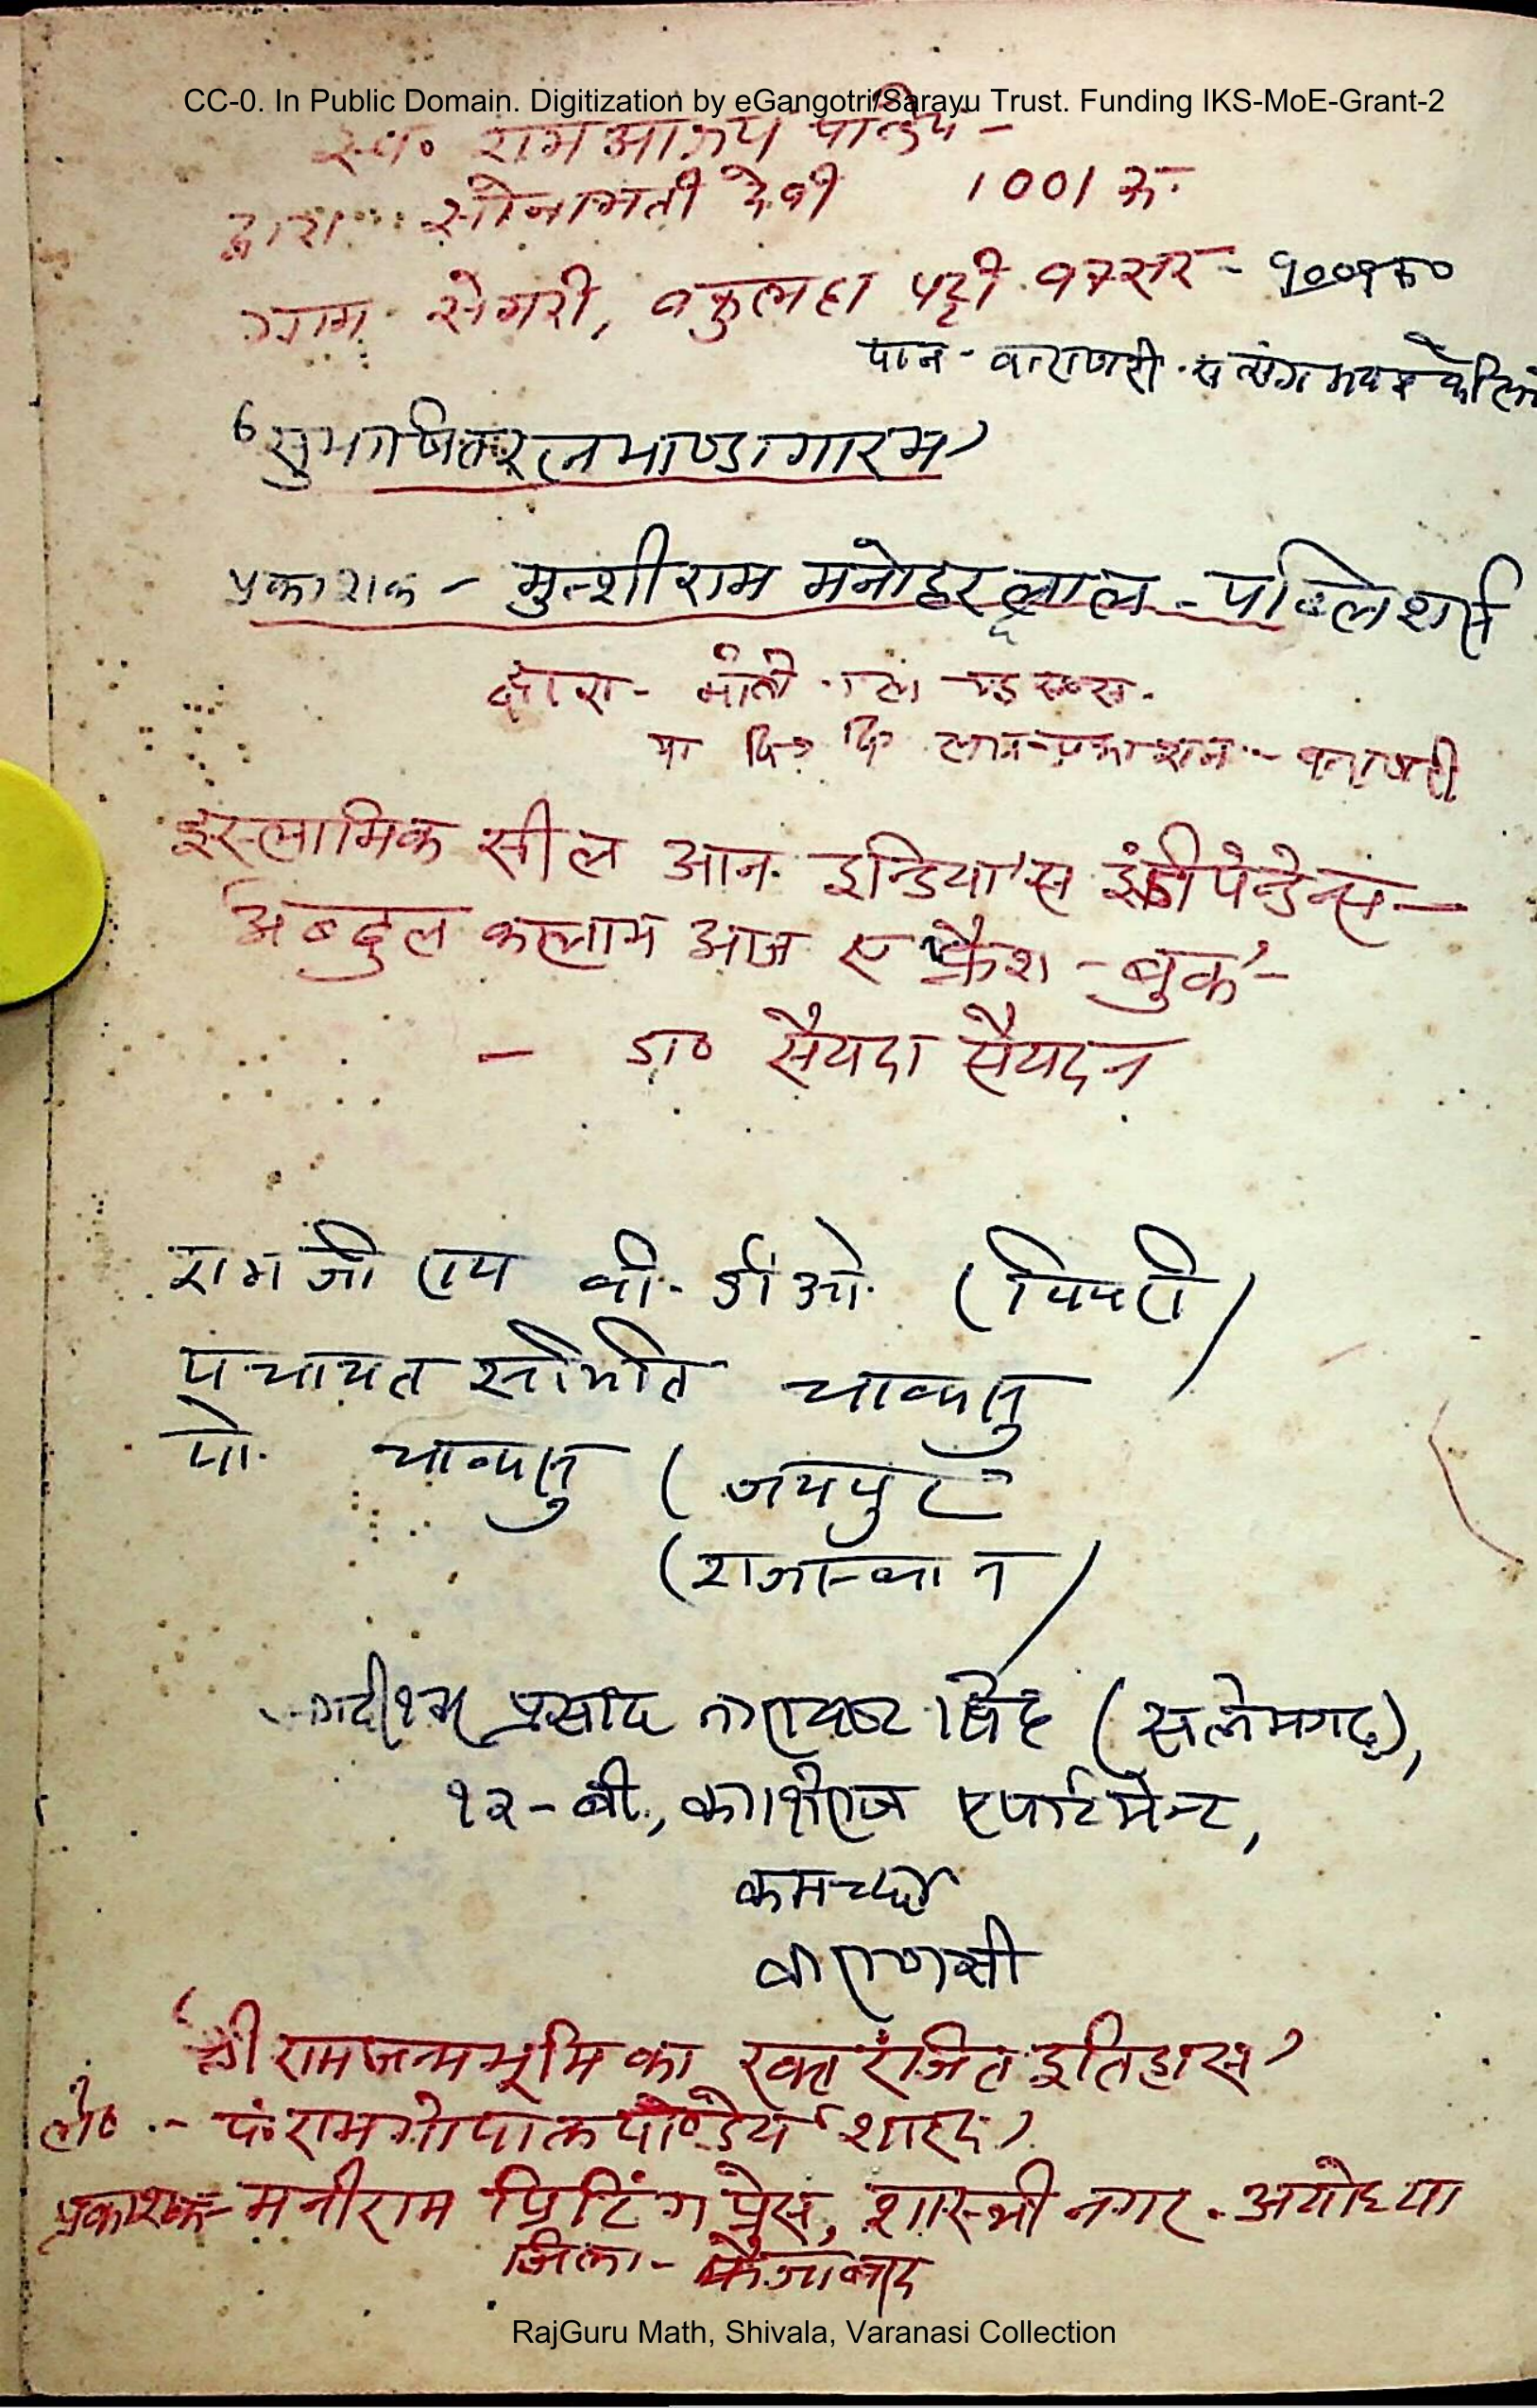 CC-0. In Public Domain. Digitization by eGangotri/Sarayu Trust. Funding IKS-MoE-Grant-2
स्व० राम आश्रय पाण्डेय -
द्वारा सोनामती देवी 1001 रु.
ग्राम सेगरी, - १००१रु०
'सुभाषितरत्नभाण्डागारम्'
प्रकाशक - मुन्शीराम मनोहरलाल - पब्लिशर्स
द्वारा- मोती
प्रकाशन - वाराणसी
इस्लामिक सील आन इन्डिया'स इंडीपेन्डेन्स -
अबदुल कलाम आज ए फ्रैश - बुक' -
- डा० सैयदा सैयदन
रामजी राय बी. डी. ओ. (पिपरी)
पंचायत समिति चाकसु
पो. चाकसु (जयपुर)
(राजस्थान)
प्रसाद नारायण सिंह (सलेमगढ़),
१२-बी., काशीराज एपार्टमेन्ट,
कमच्छा
वाराणसी
'श्री रामजन्मभूमि का रक्त रंजित इतिहास'
ले० :- पं. रामगोपाल पाण्डेय 'शारद'
प्रकाशक- मनीराम प्रिटिंग प्रेस, शास्त्री नगर - अयोध्या
जिला - फैजाबाद
RajGuru Math, Shivala, Varanasi Collection